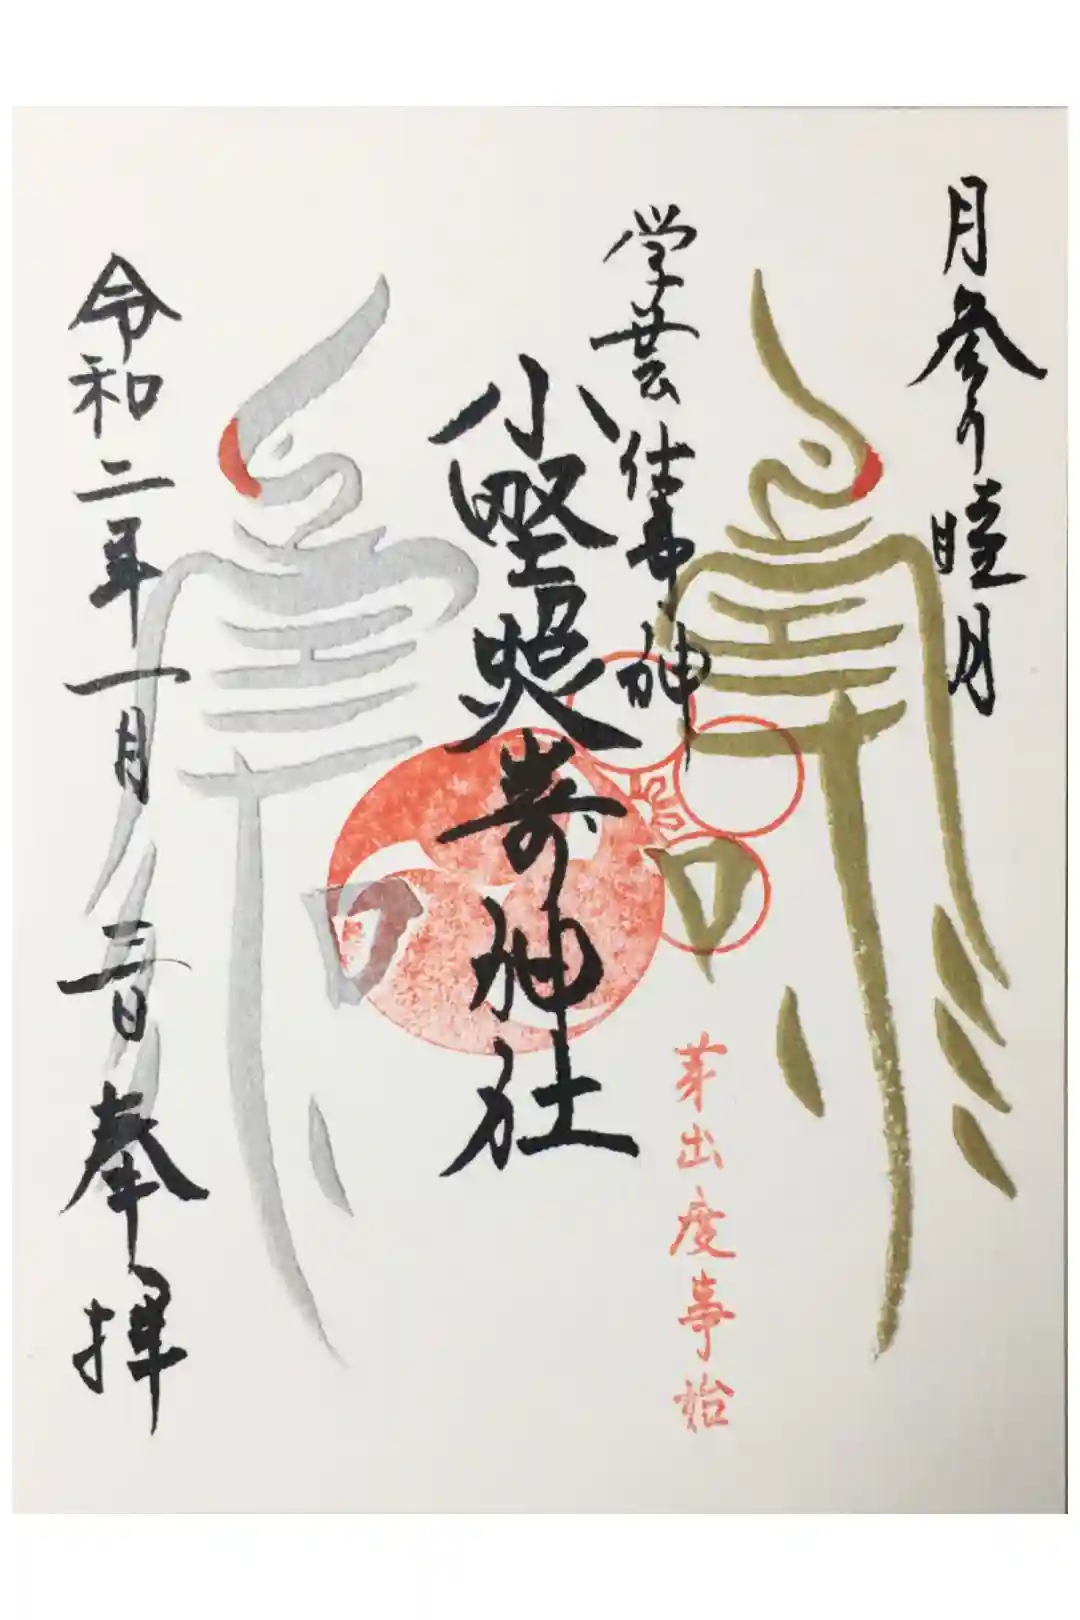 月参り 睦月
学芸 仕事 神
小野照嵜神社
芽出度事始
令和二年一月三日 奉拝